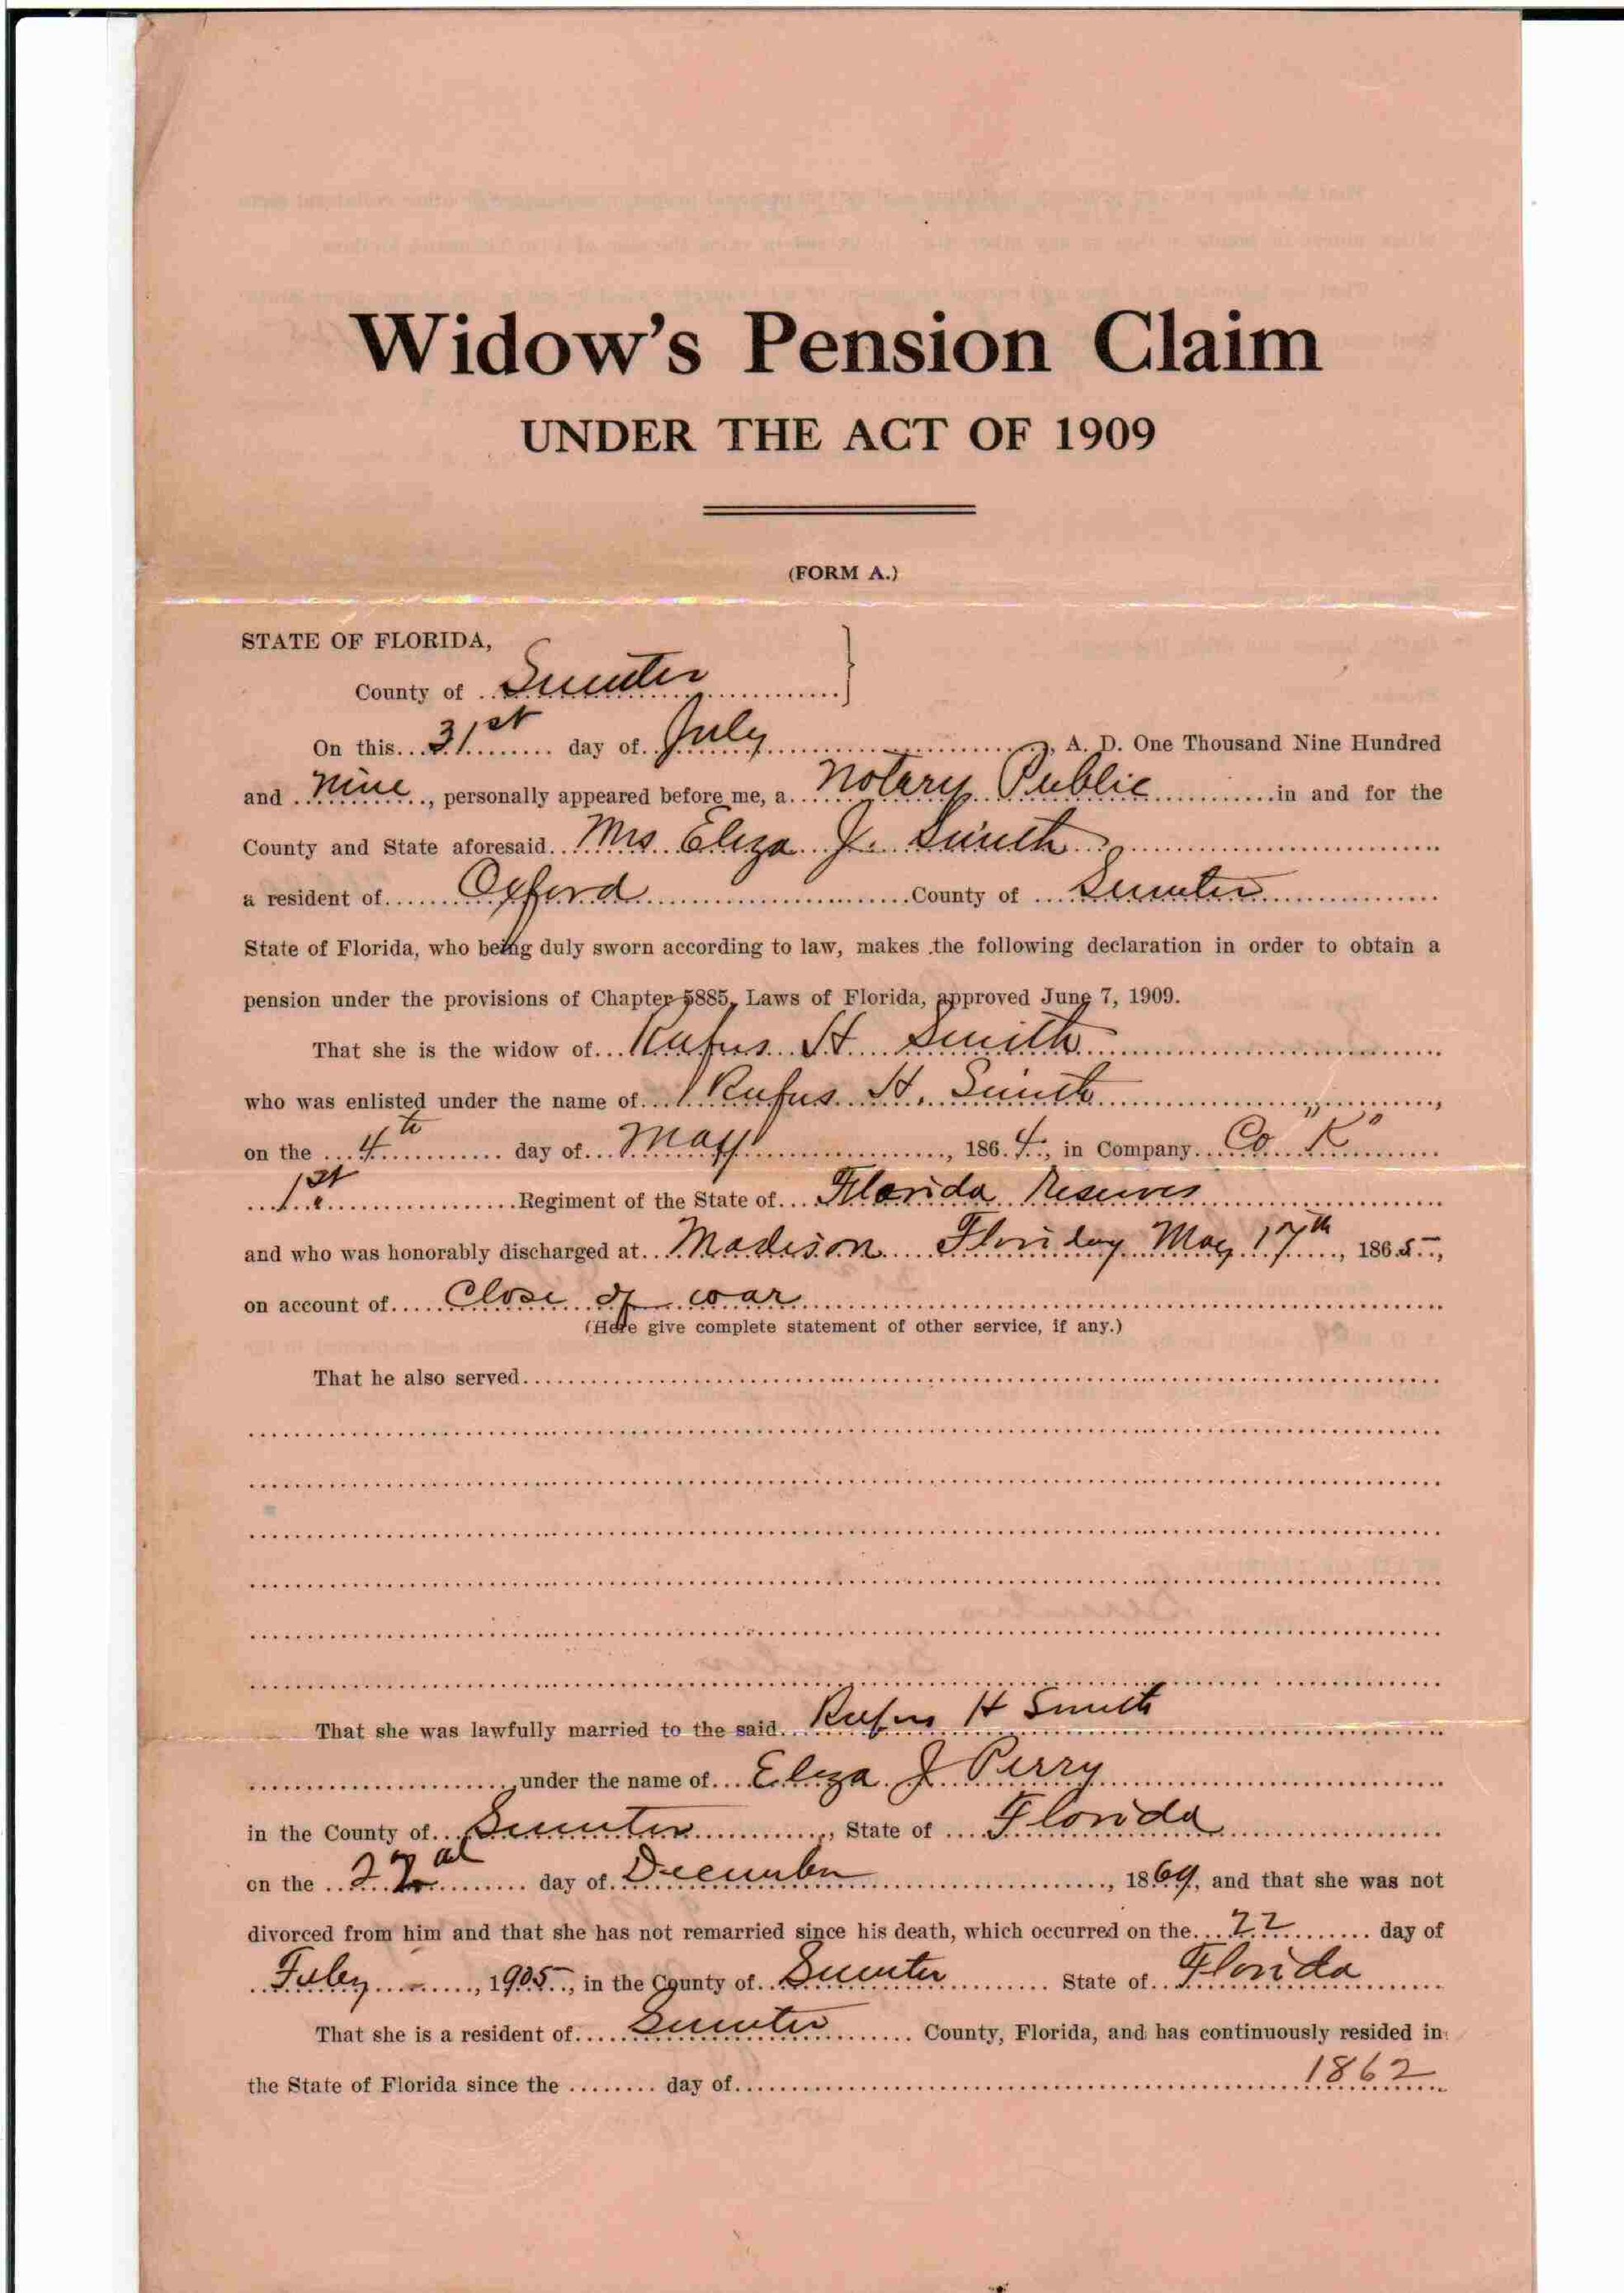 Widow's Pension Claim
UNDER THE ACT OF 1909
(FORM A.)
STATE OF FLORIDA,
County of Sumter
On this 31st day of July, A. D. One Thousand Nine Hundred
and Nine, personally appeared before me, a Notary Public in and for the
County and State aforesaid Mrs Eliza J. Smith
a resident of Oxford County of Sumter
State of Florida, who being duly sworn according to law, makes the following declaration in order to obtain a
pension under the provisions of Chapter 5885, Laws of Florida, approved June 7, 1909.
That she is the widow of Rufus H Smith
who was enlisted under the name of Rufus H. Smith,
on the 4th day of May, 1864, in Company Co "K"
1st Regiment of the State of Florida Reserves
and who was honorably discharged at Madison Florida May 17th, 1865,
on account of Close of war
(Here give complete statement of other service, if any.)
That he also served
That she was lawfully married to the said Rufus H Smith
under the name of Eliza J Perry
in the County of Sumter, State of Florida
on the day of December, 1869, and that she was not
divorced from him and that she has not remarried since his death, which occurred on the 22 day of
1905, in the County of Sumter State of Florida
That she is a resident of Sumter County, Florida, and has continuously resided in
the State of Florida since the day of 1862